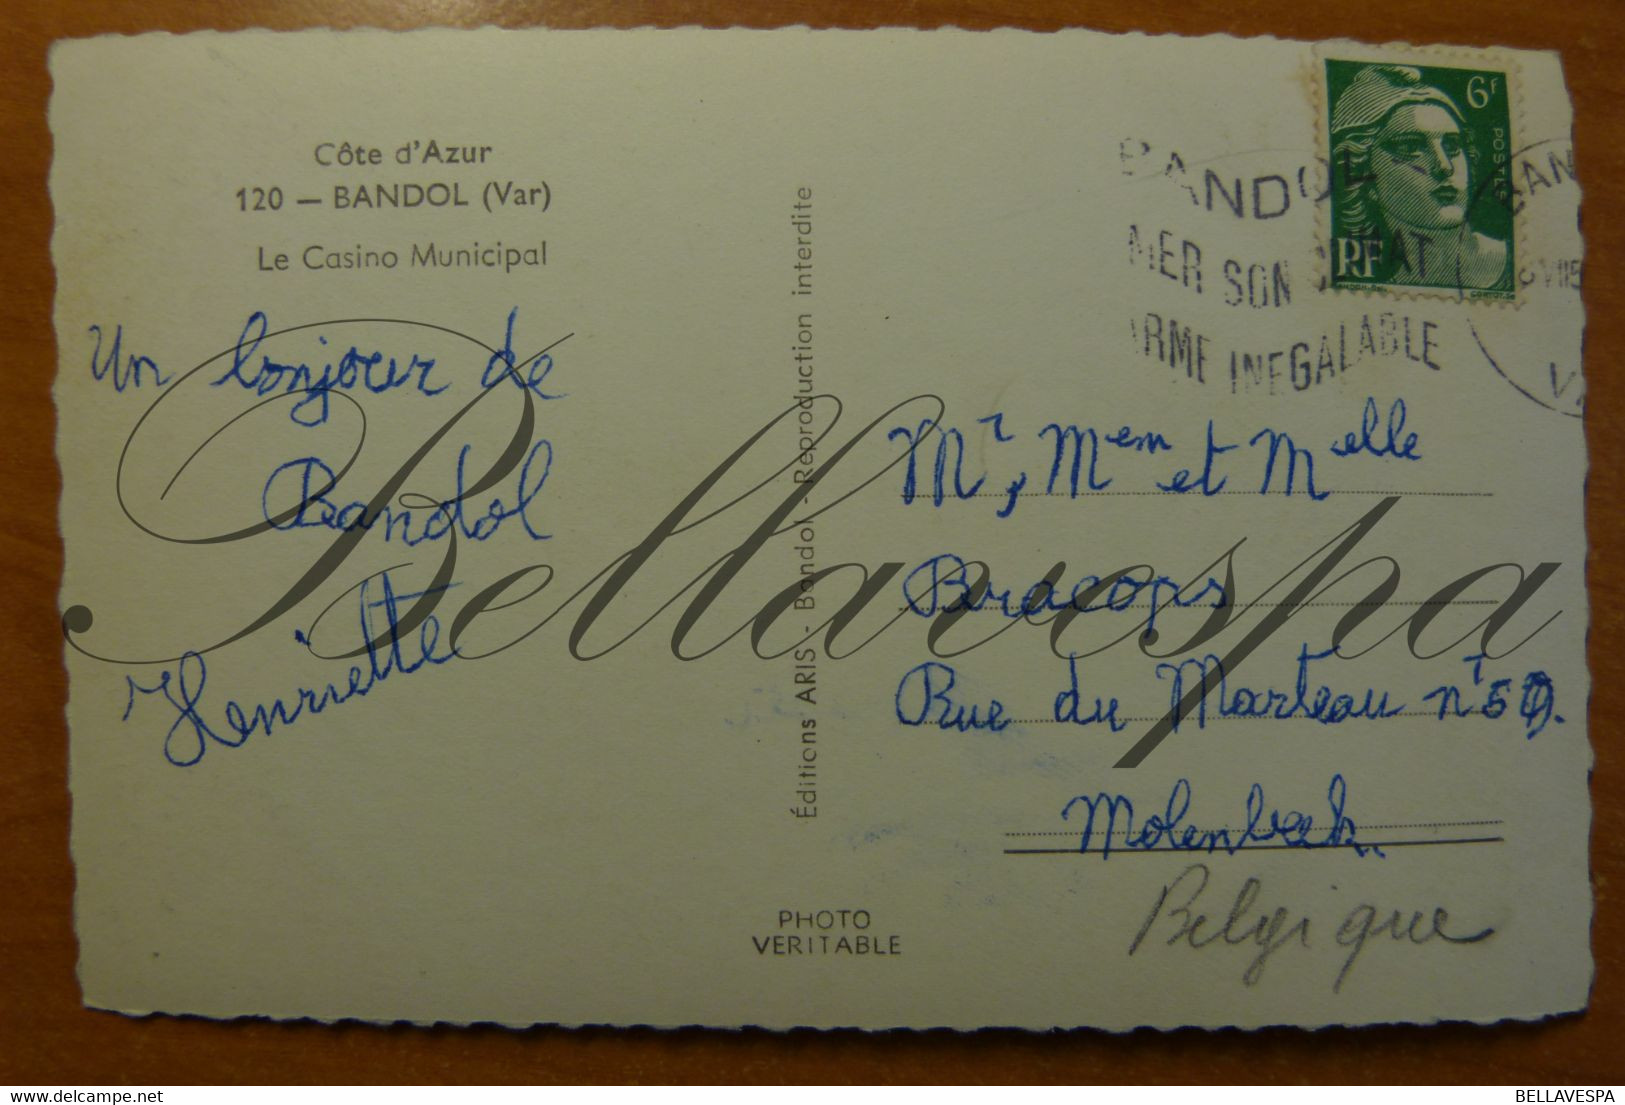 Côte d'Azur
120 — BANDOL (Var)
Le Casino Municipal
Un bonjour de
Bandol
Henriette
Éditions ARIS - Bandol - Reproduction interdite
PHOTO
VERITABLE
6F
POSTES
RF
BANDOL
MER SON CLIMAT
ARME INEGALABLE
BAN
VIII5
VA
Mr, Mem et Melle
Bracops
Rue du Marteau
Molenbeek.
Belgique
Bellavespa
BELLAVESPA